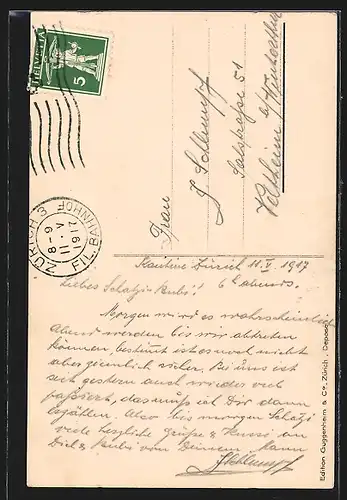 HELVETIA
5
ZÜRICH 3
8-9
11. V
1917
FIL. BAHNHOF
Frau
J Schlumpf
Salstrasse 51
Veltheim b/Winterthur
Kantine Zürich 11. V. 1917
6 h abends.
Liebes Schatzi u Bubi!
Morgen wird es wahrscheinlich
Abend werden bis wir abtreten
können, bestimmt ist es noch nicht
aber ziemlich sicher. Bei uns ist
sich gestern auch wieder viel
passiert, das muss ich Dir dann
erzählen. Also bis morgen Schatzi
viele herzliche Grüsse & Küssi an
Dich & Bubi von Deinem Mann
J Schlumpf
Edition Guggenheim & Co., Zürich, Deposé